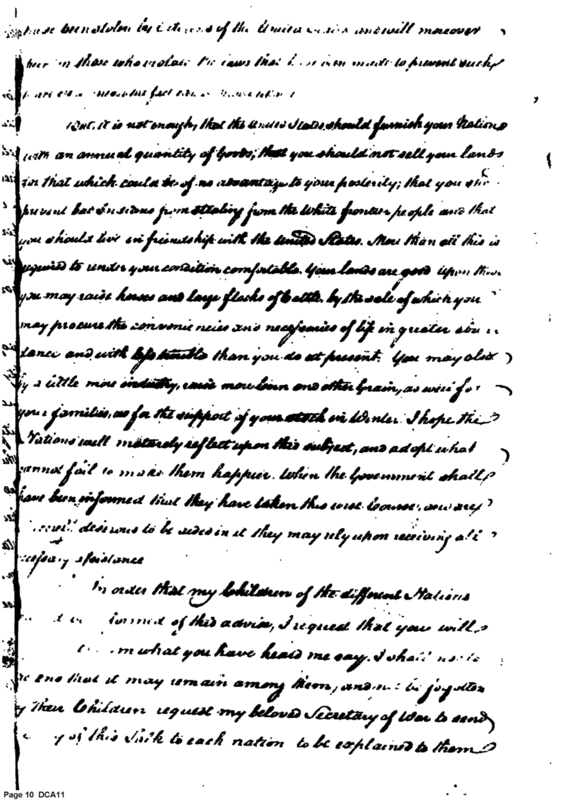 been stolen by Citizens of the United and will moreover
those who violate the laws that have been made to prevent such

But it is not enough, that the United States should furnish your Nations
with an annual quantity of Goods; that you should not sell your lands
for that which could be of no advantage to your posterity; that you
prevent bad Indians from stealing from the White frontier people and that
you should live in friendship with the United States. More than all this is
required to render your condition comfortable. Your lands are good upon these
you may raise horses and large flocks of Cattle by the sale of which you
may procure the conveniencies and necessaries of life in greater abun
dance and with less trouble than you do at present. You may also
by a little more industry, raise more Corn and other Grain, as well for
your families, as for the support of your stock in Winter. I hope the
Nations will maturely reflect upon this subject, and adopt what
cannot fail to make them happier. When the Government shall
have been informed that they have taken this wise Course, and are
desirous to be aided in it they may rely upon receiving all
necessary assistance
In order that my Children of the different Nations
informed of this advice, I request that you will
what you have heard me say. I shall
end that it may remain among them, and not be forgotten
by their Children request my beloved Secretary of War to send
of this Talk to each nation to be explained to them
Page 10 DCA11